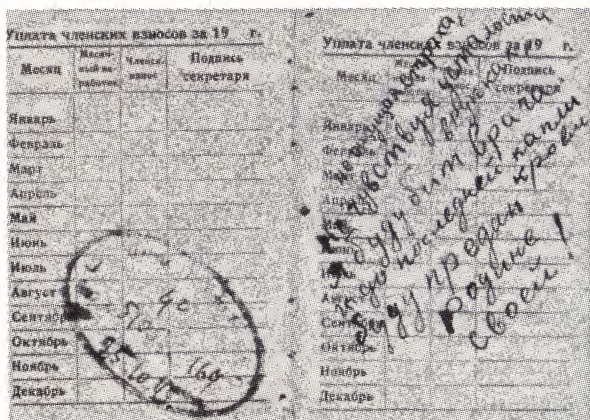 Уплата членских взносов за 19 г.
Месяц Месяч-ный за-работок Членск. взнос Подпись секретаря
Январь
Февраль
Март
Апрель
Май
Июнь
Июль
Август
Сентябрь
Октябрь
Ноябрь
Декабрь
40
510
25.10
160
Уплата членских взносов за 19 г.
Месяц Подпись секретаря
Январь
Февраль
Март
Апрель
Май
Июнь
Июль
Август
Сентябрь
Октябрь
Ноябрь
Декабрь
чувствуя усталости
Я буду бить врага
до последней капли крови
буду предан
Родине
своей!